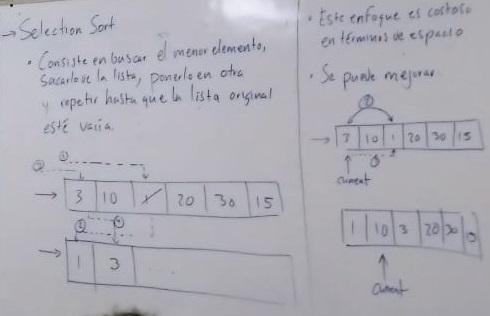 → Selection Sort
• Consiste en buscar el menor elemento,
sacarlo de la lista, ponerlo en otra
y repetir hasta que la lista original
esté varia.
① 
②
→ 3 10 1 20 30 15
② ④
→ 1 3 ...
• Este enfoque es costoso
en términos de espacio
• Se puede mejorar
②
→ 3 10 1 20 30 15
①
current
1 10 3 20 30 15
current